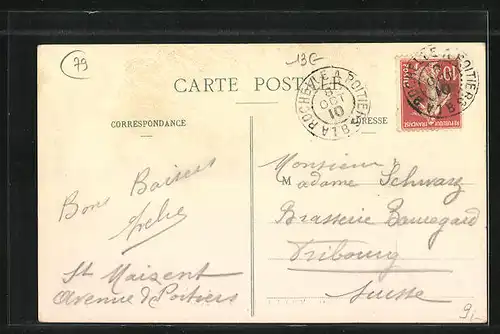 79
13G
CARTE POSTALE
CORRESPONDANCE
ADRESSE
LA ROCHELLE A POITIERS
8
OCT
10
POSTES
10
REPUBLIQUE FRANÇAISE
Monsieur
Madame Schwarz
Brasserie Beauregard
Fribourg
Suisse
Bons Baisers
St Maixent
Avenue de Poitiers
9,-